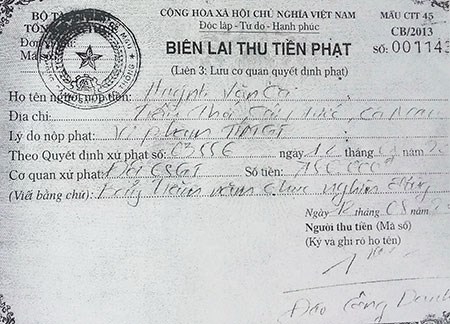 BỘ TÀ
CỘNG HÒA XÃ HỘI CHỦ NGHĨA VIỆT NAM
MẪU CTT 45
TỔN
Độc lập - Tự do - Hạnh phúc
CB/2013
Đơn
Mã số
BIÊN LAI THU TIỀN PHẠT
SỐ: 001143
(Liên 3: Lưu cơ quan quyết định phạt)
Họ tên người nộp tiền: Huỳnh Văn
Địa chỉ: Cà Mau
Lý do nộp phạt: Vi phạm TTATGT
Theo Quyết định xử phạt số: ngày 12 tháng năm 20
Cơ quan xử phạt: Đội CSGT Số tiền:
(Viết bằng chữ): Bảy trăm năm chục nghìn đồng
Ngày 12 tháng 05 năm
Người thu tiền (Mã số)
(Ký và ghi rõ họ tên)
Đào Công Danh